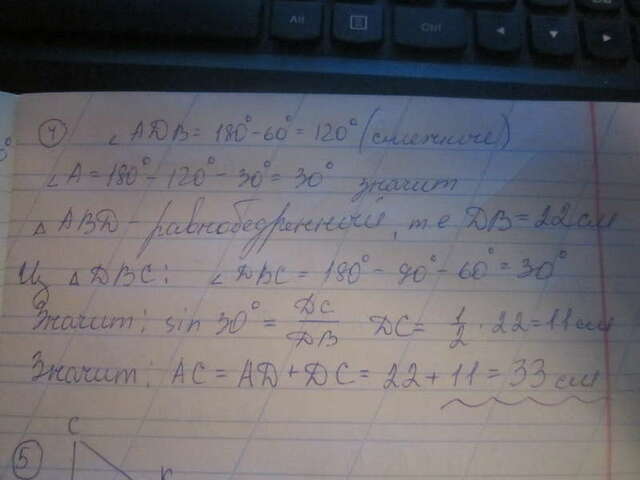 ④ ∠ADB = 180°-60° = 120° (смежные)
∠A = 180° - 120° - 30° = 30° значит
△ABD - равнобедренный, т.е DB = 22 см
Из △DBC: ∠DBC = 180° - 90° - 60° = 30°
Значит: sin 30° = DC/DB DC = 1/2 · 22 = 11 см
Значит: AC = AD + DC = 22 + 11 = 33 см
⑤ C
Alt
Ctrl